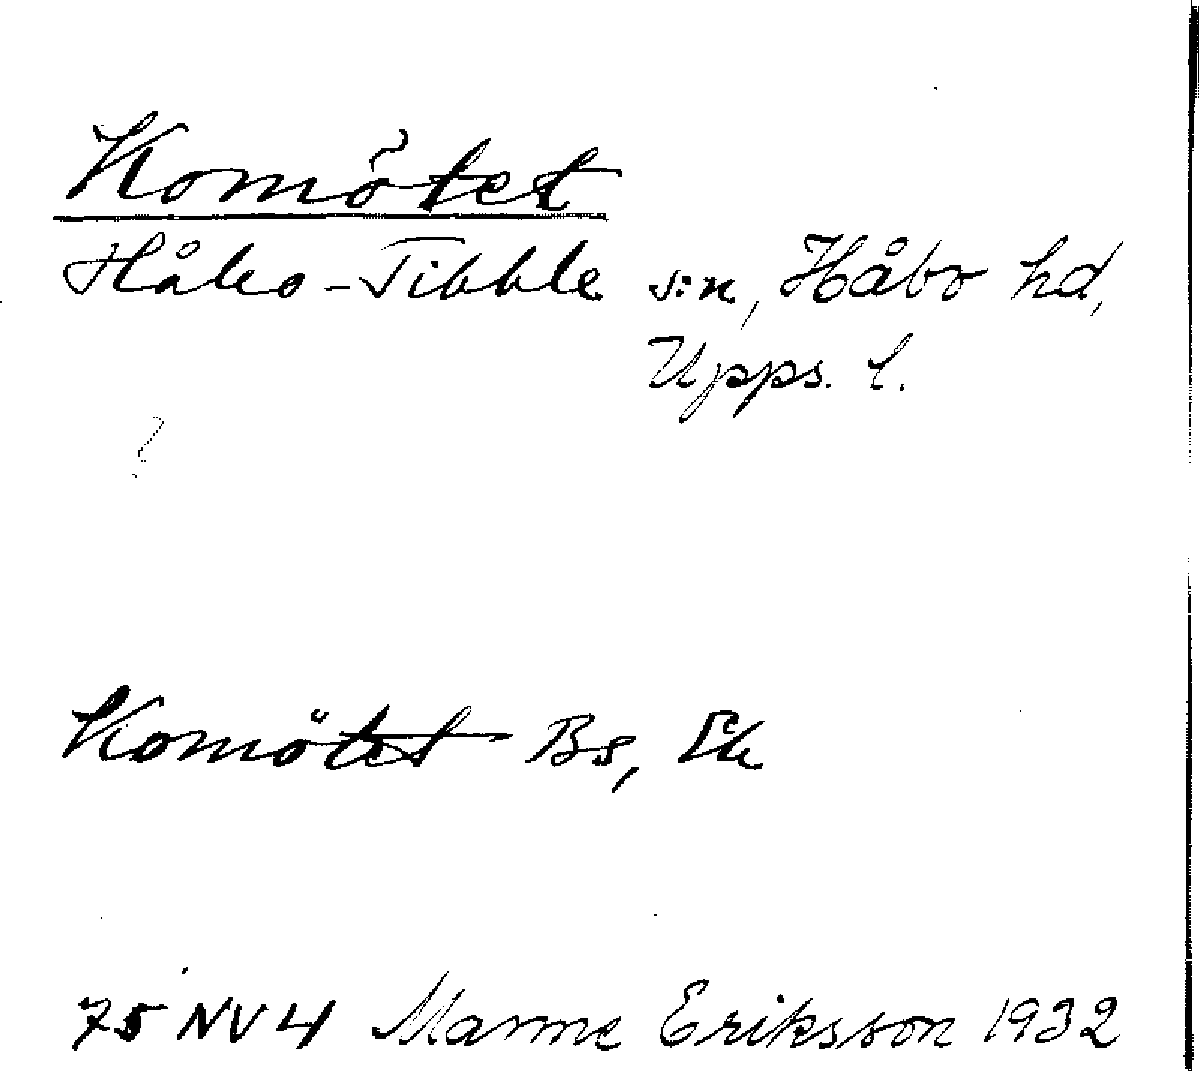 Komötet
Håbo-Tibble s:n, Håbo hd,
Upps. l.
?
Komötet Bs, Ek
75 NV 4 Manne Eriksson 1932